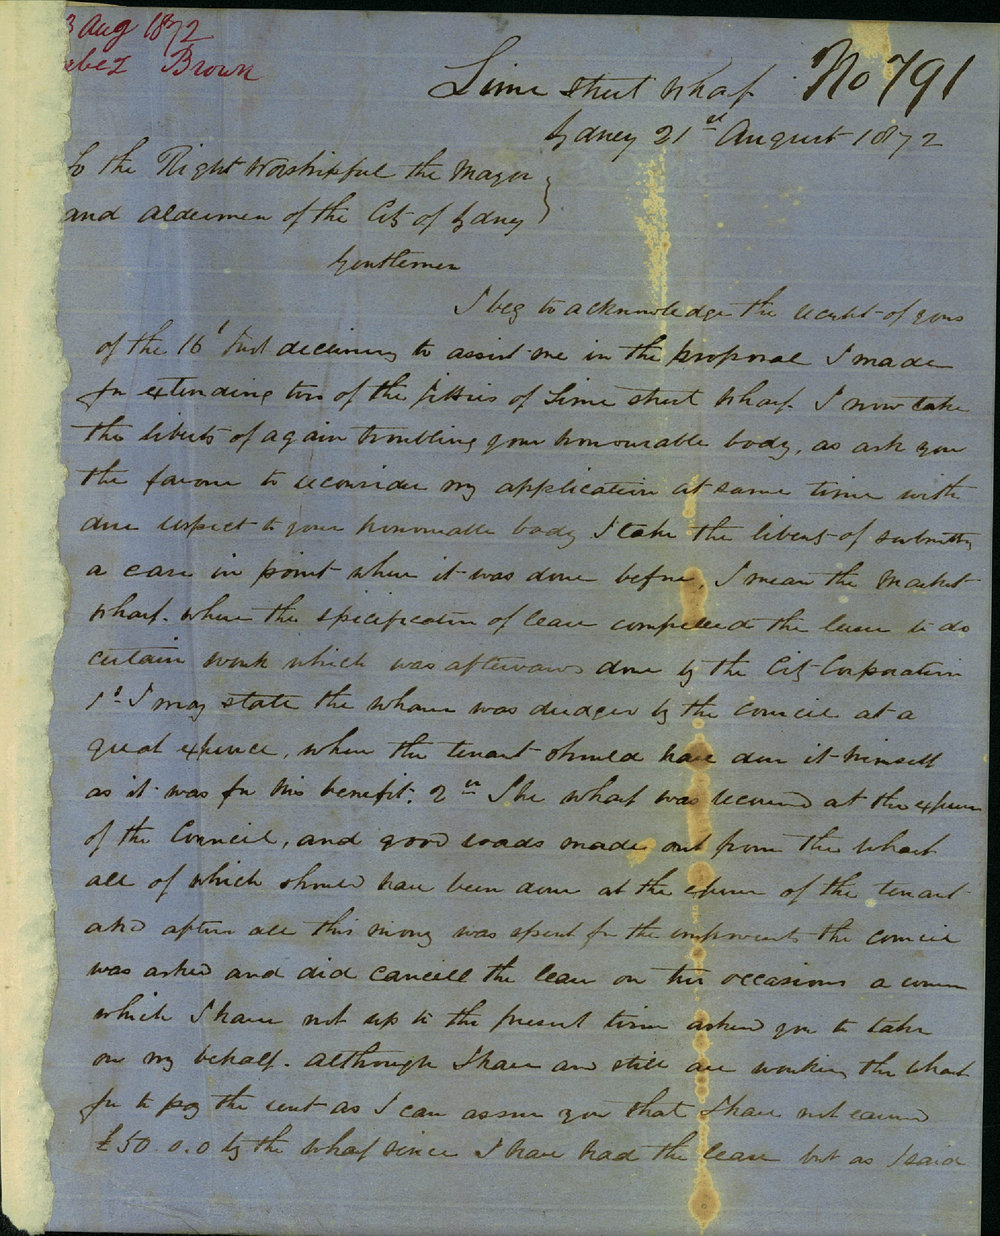 3 Aug 1872
abez Brown
No 791
Lime street Wharf
Sydney 21st August 1872
To the Right Worshipful the Mayor
and Aldermen of the City of Sydney
Gentlemen
I beg to acknowledge the receipt of yours
of the 16t Inst declining to assist me in the proposal I made
for extending two of the jetties of Lime street Wharf. I now take
the liberty of again troubling your honourable body, as ask you
the favour to reconsider my application at same time with
due respect to your honourable body I take the liberty of submitting
a case in point when it was done before, I mean the Market
Wharf. where the specification of lease compelled the lessee to do
certain work which was afterwards done by the City Corporation
1st I may state the wharf was dredged by the Council at a
great expence, when the tenant should have done it himself
as it was for his benefit. 2nd The wharf was secured at the expense
of the Council, and good roads made out from the wharf
all of which should have been done at the expense of the tenant
and after all this money was spent for the improvements the Council
was asked and did cancell the lease on two occasions a course
which I have not up to the present time asked you to take
on my behalf. although I have and still are working the wharf
for to pay the rent as I can assure you that I have not earned
£50.0.0 by the wharf since I have had the lease but as I said